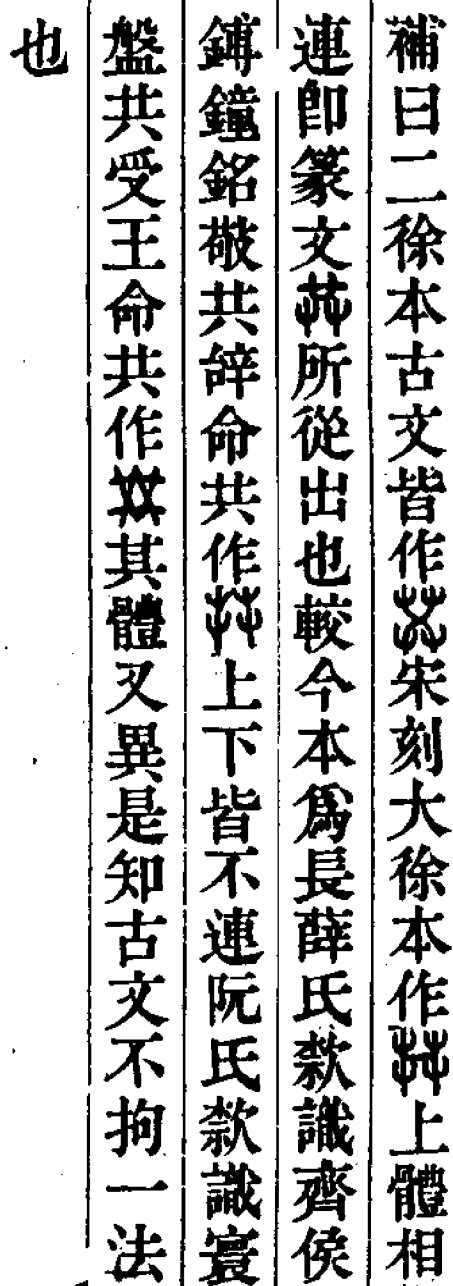 補曰二徐本古文皆作宋刻大徐本作上體相
連卽篆文所從出也較今本爲長薛氏款識齊侯
鎛鐘銘敬共辝命共作上下皆不連阮氏款識寰
盤共受王命共作其體又異是知古文不拘一法
也